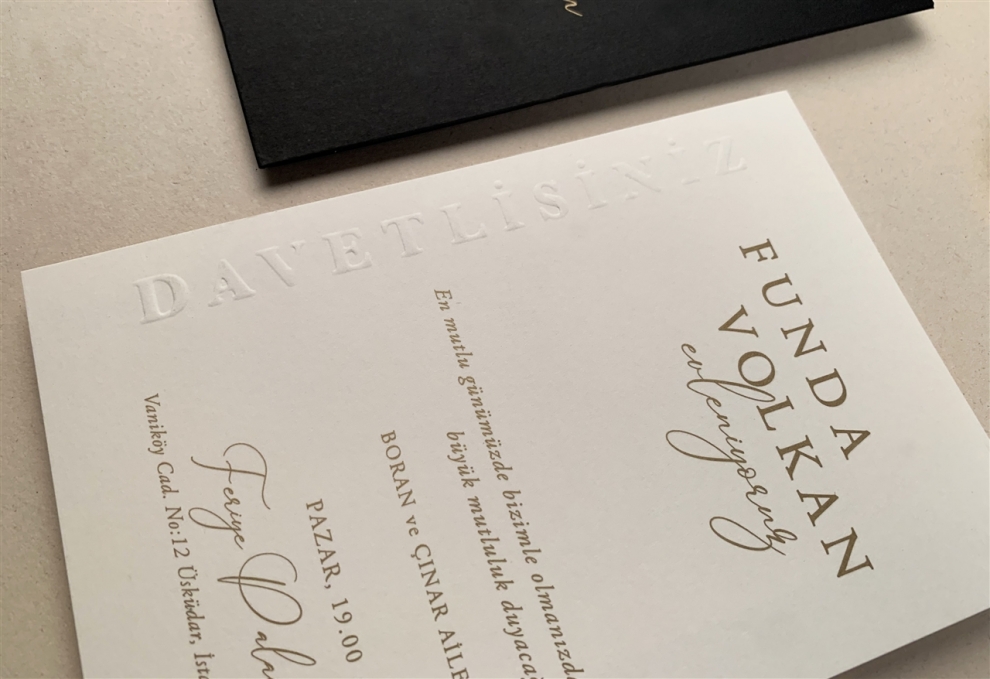 DAVETLİSİNİZ
FUNDA
VOLKAN
evleniyoruz
En mutlu günümüzde bizimle olmanızda
büyük mutluluk
BORAN ve ÇINAR
PAZAR, 19.00
Feriye
Vaniköy Cad. No:12 Üsküdar,